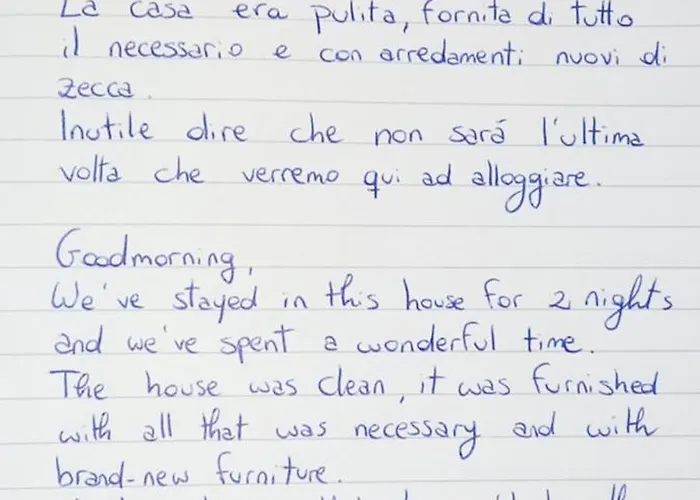 La casa era pulita, fornita di tutto
il necessario e con arredamenti nuovi di
zecca.
Inutile dire che non sará l'ultima
volta che verremo qui ad alloggiare.
Goodmorning,
We've stayed in this house for 2 nights
and we've spent a wonderful time.
The house was clean, it was furnished
with all that was necessary and with
brand-new furniture.